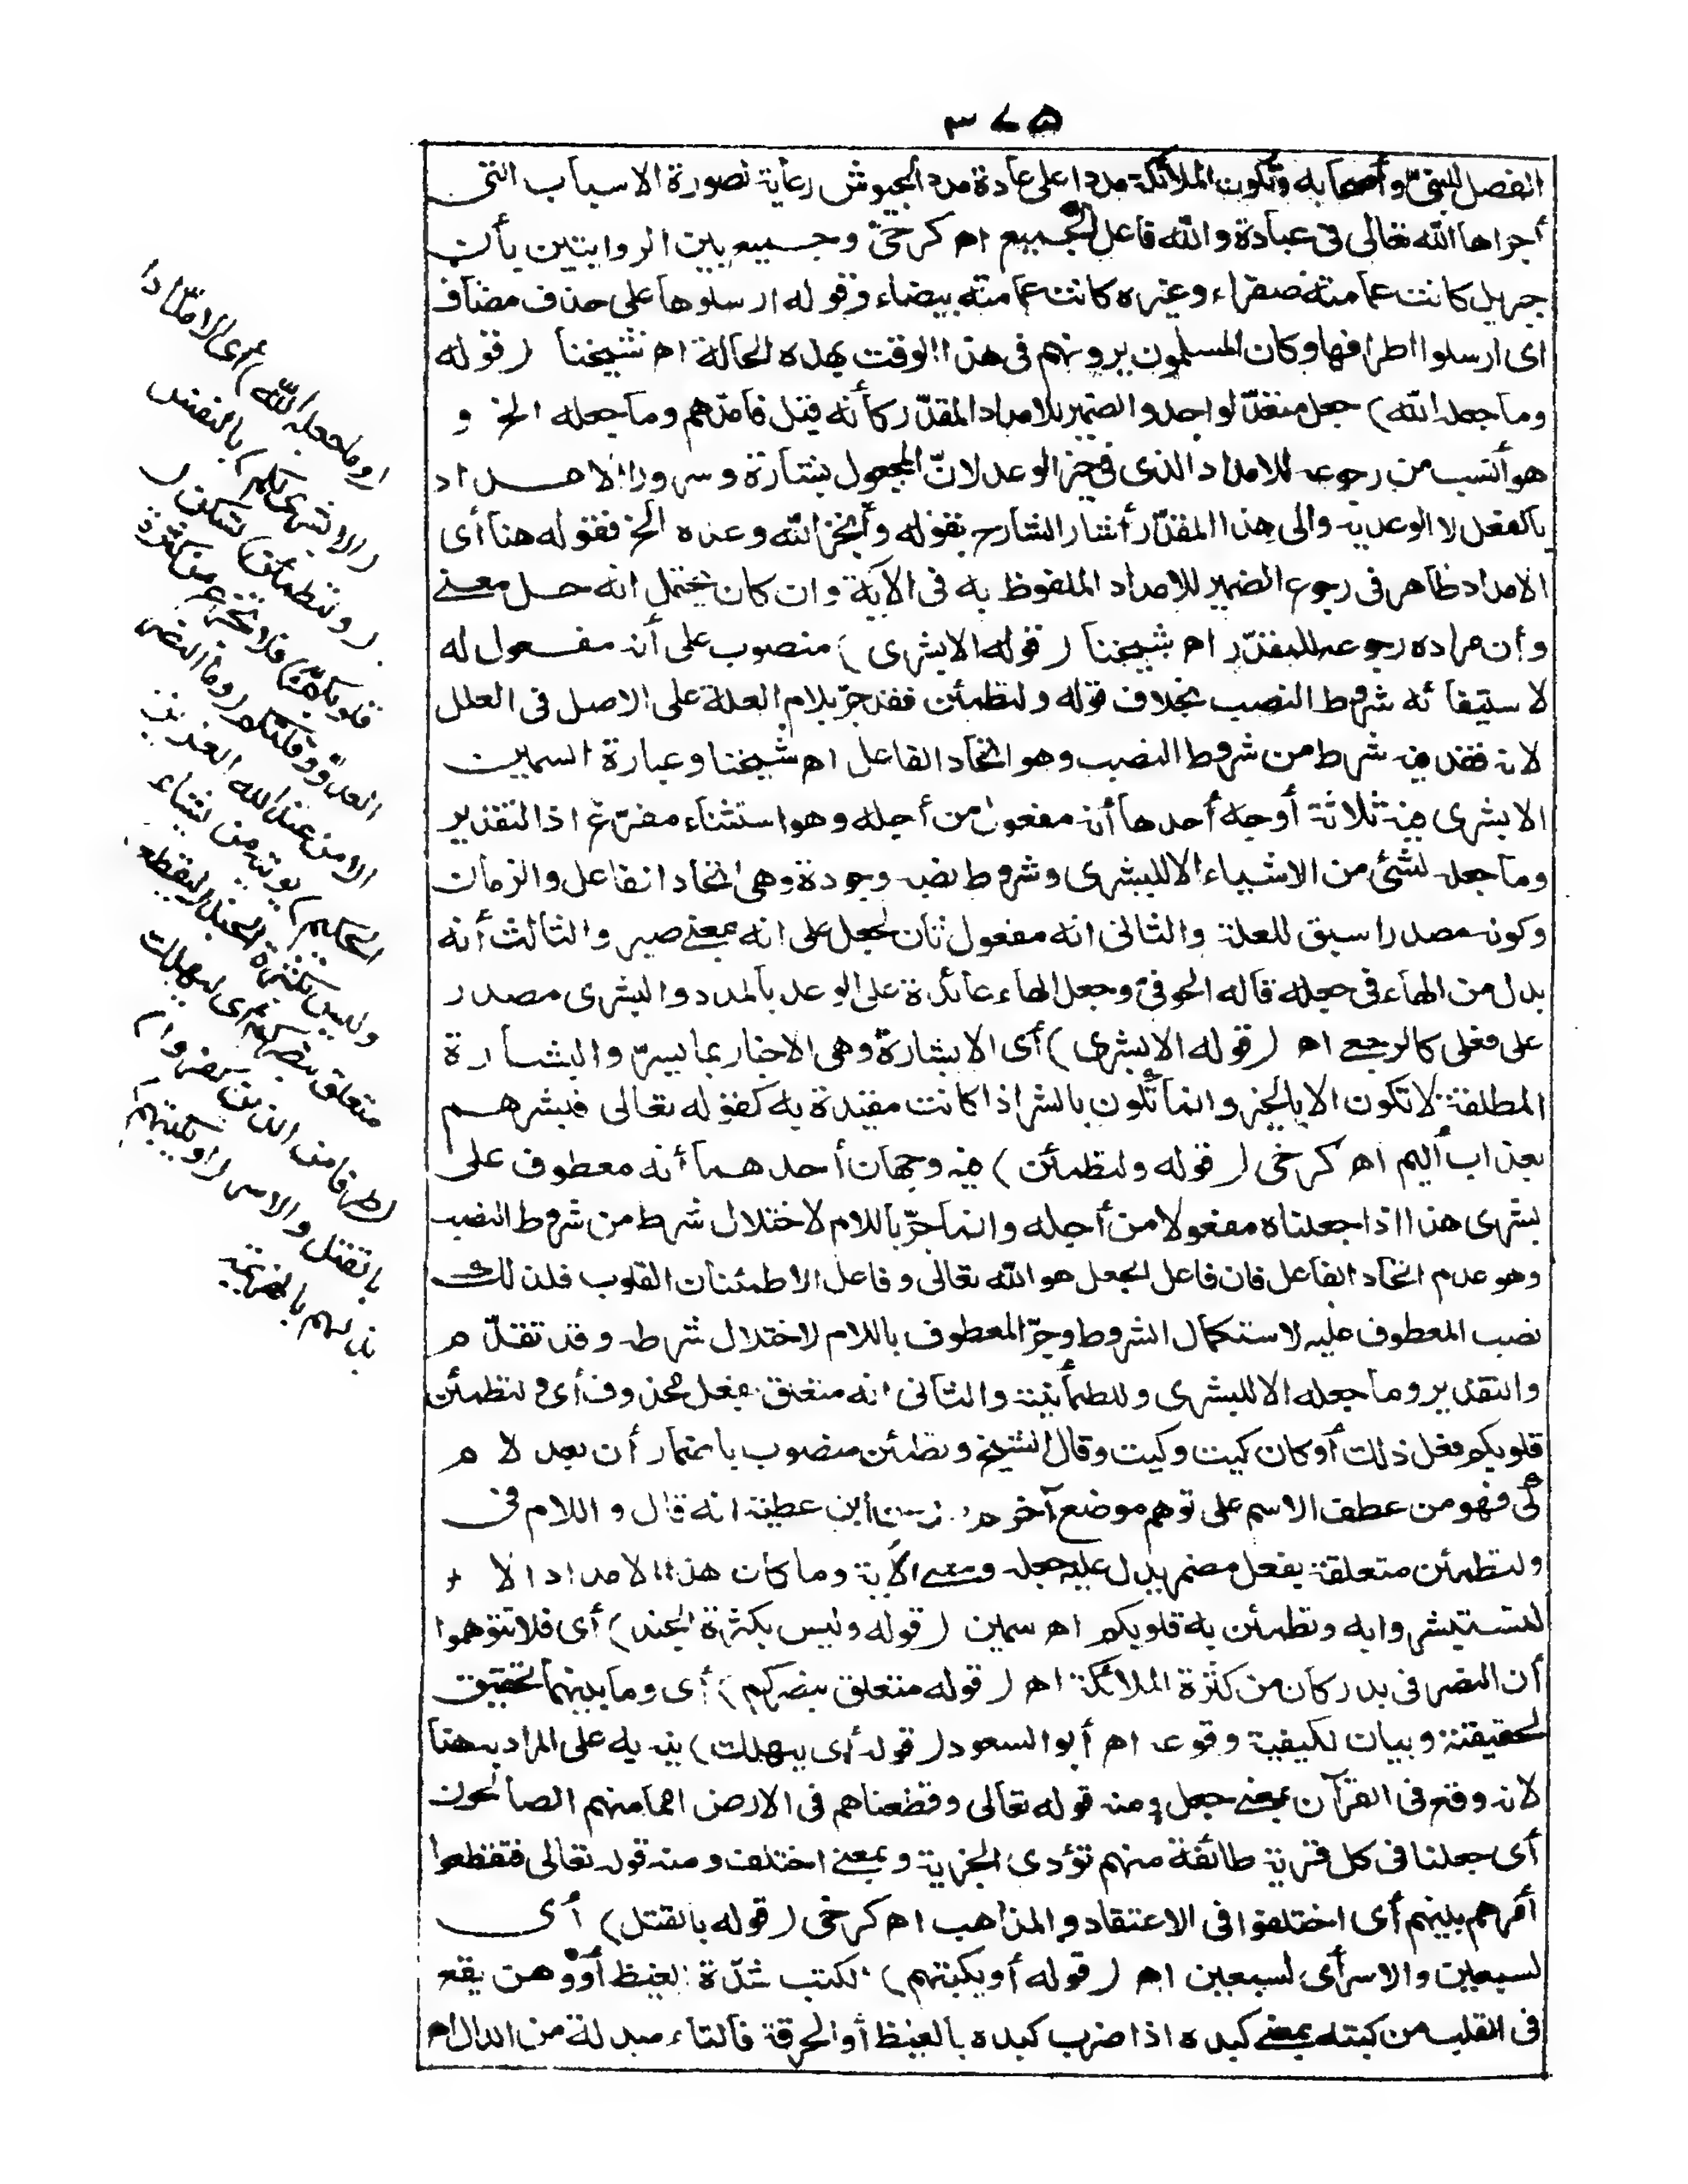 ٣٧٥
الفضل للنبيّ وأصحابه وتكون الملائكة مددا على عادة مدد الجيوش رعاية لصورة الاسباب التى
أجراها الله تعالى فى عبادة والله فاعل الجميع اه كرخىّ وجمع بين الروايتين بأن
جبريل كانت عمامته صفراء وغيره كانت عمامته بيضاء وقوله ارسلوها على حذف مضاف
اى ارسلوا اطرافها وكان المسلمون يرونهم فى هذا الوقت بهذه الحالة اه شيخنا (قوله
وما جعله الله) جعل متعدّ لواحد والضمير للامداد المقدّر كأنه قيل فامدّهم وما جعله الخ و
هو أنسب من رجوعه للامداد الذى فى حيز الوعد لانّ المجعول بشارة وسرورا الامداد
بالفعل لا الوعد به والى هذا المقدّر أشار الشارح بقوله وأنجز الله وعده الخ فقوله هنا أى
الامداد ظاهر فى رجوع الضمير للامداد الملفوظ به فى الآية وان كان يحتمل انه حل معنى
وان مراده رجوعه للمقدّر اه شيخنا (قوله الا بشرى) منصوب على أنه مفعول له
لاستيفائه شروط النصب بخلاف قوله ولتطمئن فقد جرّ بلام العلة على الاصل فى العلل
لانه فقد فيه شرط من شروط النصب وهو اتحاد الفاعل اه شيخنا وعبارة السمين
الا بشرى فيه ثلاثة أوجه أحدها أنه مفعول من أجله وهو استثناء مفرّغ اذ التقدير
وما جعله لشئ من الاشياء الا للبشرى وشروط نصبه وجودة وهى اتحاد الفاعل والزمان
وكونه مصدرا سيق للعلة والثانى انه مفعول ثان لجعل على انه بمعنى صير والثالث أنه
بدل من الهاء فى جعله قاله الحوفىّ وجعل الهاء عائدة على الوعد بالمدد والبشرى مصدر
على فعلى كالرجعى اه (قوله الا بشرى) أى الا بشارة وهى الاخبار بما يسرّ والبشارة
المطلقة لا تكون الا بالخير وانما تكون بالشر اذا كانت مقيدة به كقوله تعالى فبشرهم
بعذاب أليم اه كرخى (قوله ولتطمئن) فيه وجهان أحدهما أنه معطوف على
بشرى هذا اذا جعلناه مفعولا من أجله وانما جرّ باللام لاختلال شرط من شروط النصب
وهو عدم اتحاد الفاعل فان فاعل الجعل هو الله تعالى وفاعل الاطمئنان القلوب فلذلك
نصب المعطوف عليه لاستكمال الشروط وجرّ المعطوف باللام لاختلال شرط وقد تقدّم
والتقدير وما جعله الا للبشرى وللطمأنينة والثانى انه متعلق بفعل محذوف أى ولتطمئن
قلوبكم فعل ذلك أو كان كيت وكيت وقال الشيخ وتطمئن منصوب باضمار أن بعد لام
كى فهو من عطف الاسم على توهم موضع آخر ابن عطية انه قال واللام فى
ولتطمئن متعلقة بفعل مضمر يدل عليه جعله ومعنى الآية وما كان هذا الامداد الا
لتستبشروا به وتطمئن به قلوبكم اه سمين (قوله وليس بكثرة الجند) أى فلا تتوهموا
أن النصر فى بدر كان من كثرة الملائكة اه (قوله متعلق بنصركم) أى وما بينهما تحقيق
لحقيقته وبيان لكيفية وقوعه اه أبو السعود (قوله أى ليهلك) نبه به على المراد به هنا
لانه وقع فى القرآن بمعنى جعل ومنه قوله تعالى وقطعناهم فى الارض امما منهم الصالحون
أى جعلنا فى كل قرية طائفة منهم تؤدى الجزية وبمعنى اختلف ومنه قوله تعالى فتقطعوا
أمرهم بينهم أى اختلفوا فى الاعتقاد والمذاهب اه كرخى (قوله بالقتل) أى
لسبعين والاسر أى لسبعين اه (قوله أو يكبتهم) الكبت شدّة الغيظ أو وهن يقع
فى القلب من كبته بمعنى كبده اذا ضرب كبده بالغيظ أو الحرقة فالتاء مبدلة من الدال اه
(وما جعله الله) أى الامداد
(الا بشرى لكم) بالنصر
(ولتطمئن) تسكن (
قلوبكم به) فلا تجزع من كثرة
العدوّ وقلتكم (وما النصر
الا من عند الله العزيز
الحكيم) يؤتيه من يشاء
وليس بكثرة الجند (ليقطع
متعلق بنصركم أى ليهلك
(طرفا من الذين كفروا)
بالقتل والاسر (أو يكبتهم)
يذلهم بالهزيمة